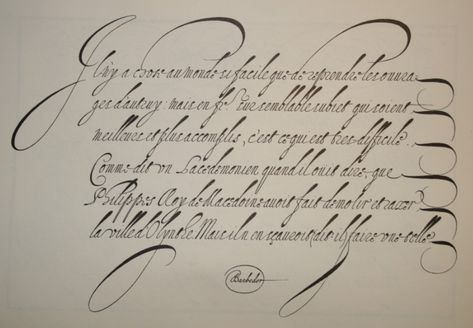 Il n'y a chose au monde si facile que de reprendre les ouura-
ges d'autruy: mais en fe. sur semblable subiet qui soient
meilleurs et plus accomplis, c'est ce qui est tres-difficile.,
Comme dit vn Lacedemonien quand il ouit dire, que
Philippes Roy de Macedoine auoit fait demolir et razer
la ville d'Olynthe. Mais il n'en sçauroit (dit-il) faire vne telle.
Barbedor